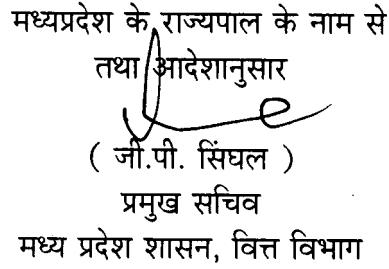 मध्यप्रदेश के राज्यपाल के नाम से
तथा आदेशानुसार
( जी.पी. सिंघल )
प्रमुख सचिव
मध्य प्रदेश शासन, वित्त विभाग